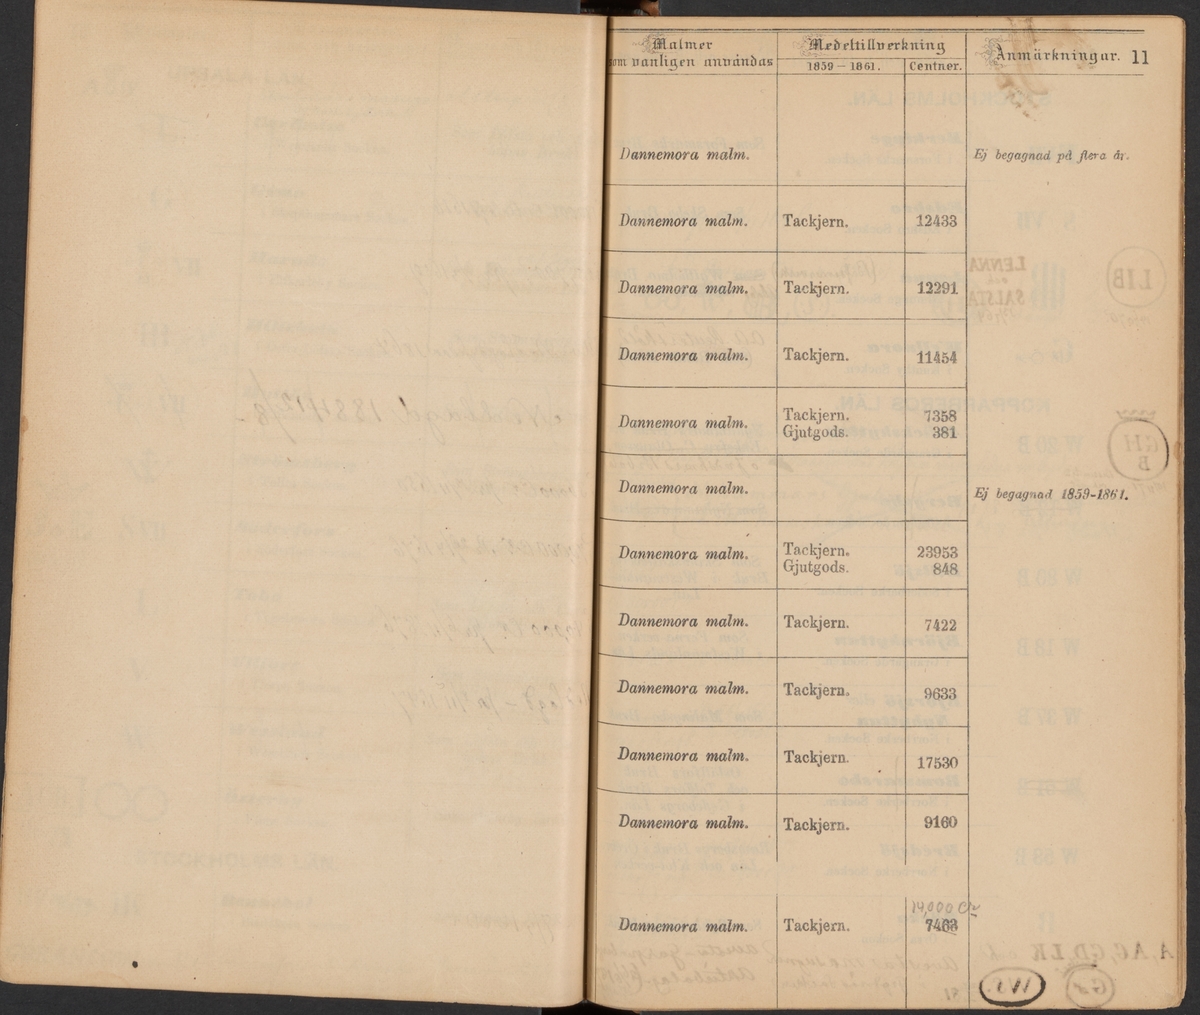 Malmer
som vanligen användas
Medeltillverkning
1859 – 1861.
Centner.
Anmärkningar. 11
Dannemora malm.
Ej begagnad på flera år.
Dannemora malm. Tackjern. 12433
Dannemora malm. Tackjern. 12291
Dannemora malm. Tackjern. 11454
Dannemora malm. Tackjern. 7358
Gjutgods. 381
Dannemora malm.
Ej begagnad 1859-1861.
Dannemora malm. Tackjern. 23953
Gjutgods. 848
Dannemora malm. Tackjern. 7422
Dannemora malm. Tackjern. 9633
Dannemora malm. Tackjern. 17530
Dannemora malm. Tackjern. 9160
14,000 Ctr
Dannemora malm. Tackjern. 7463